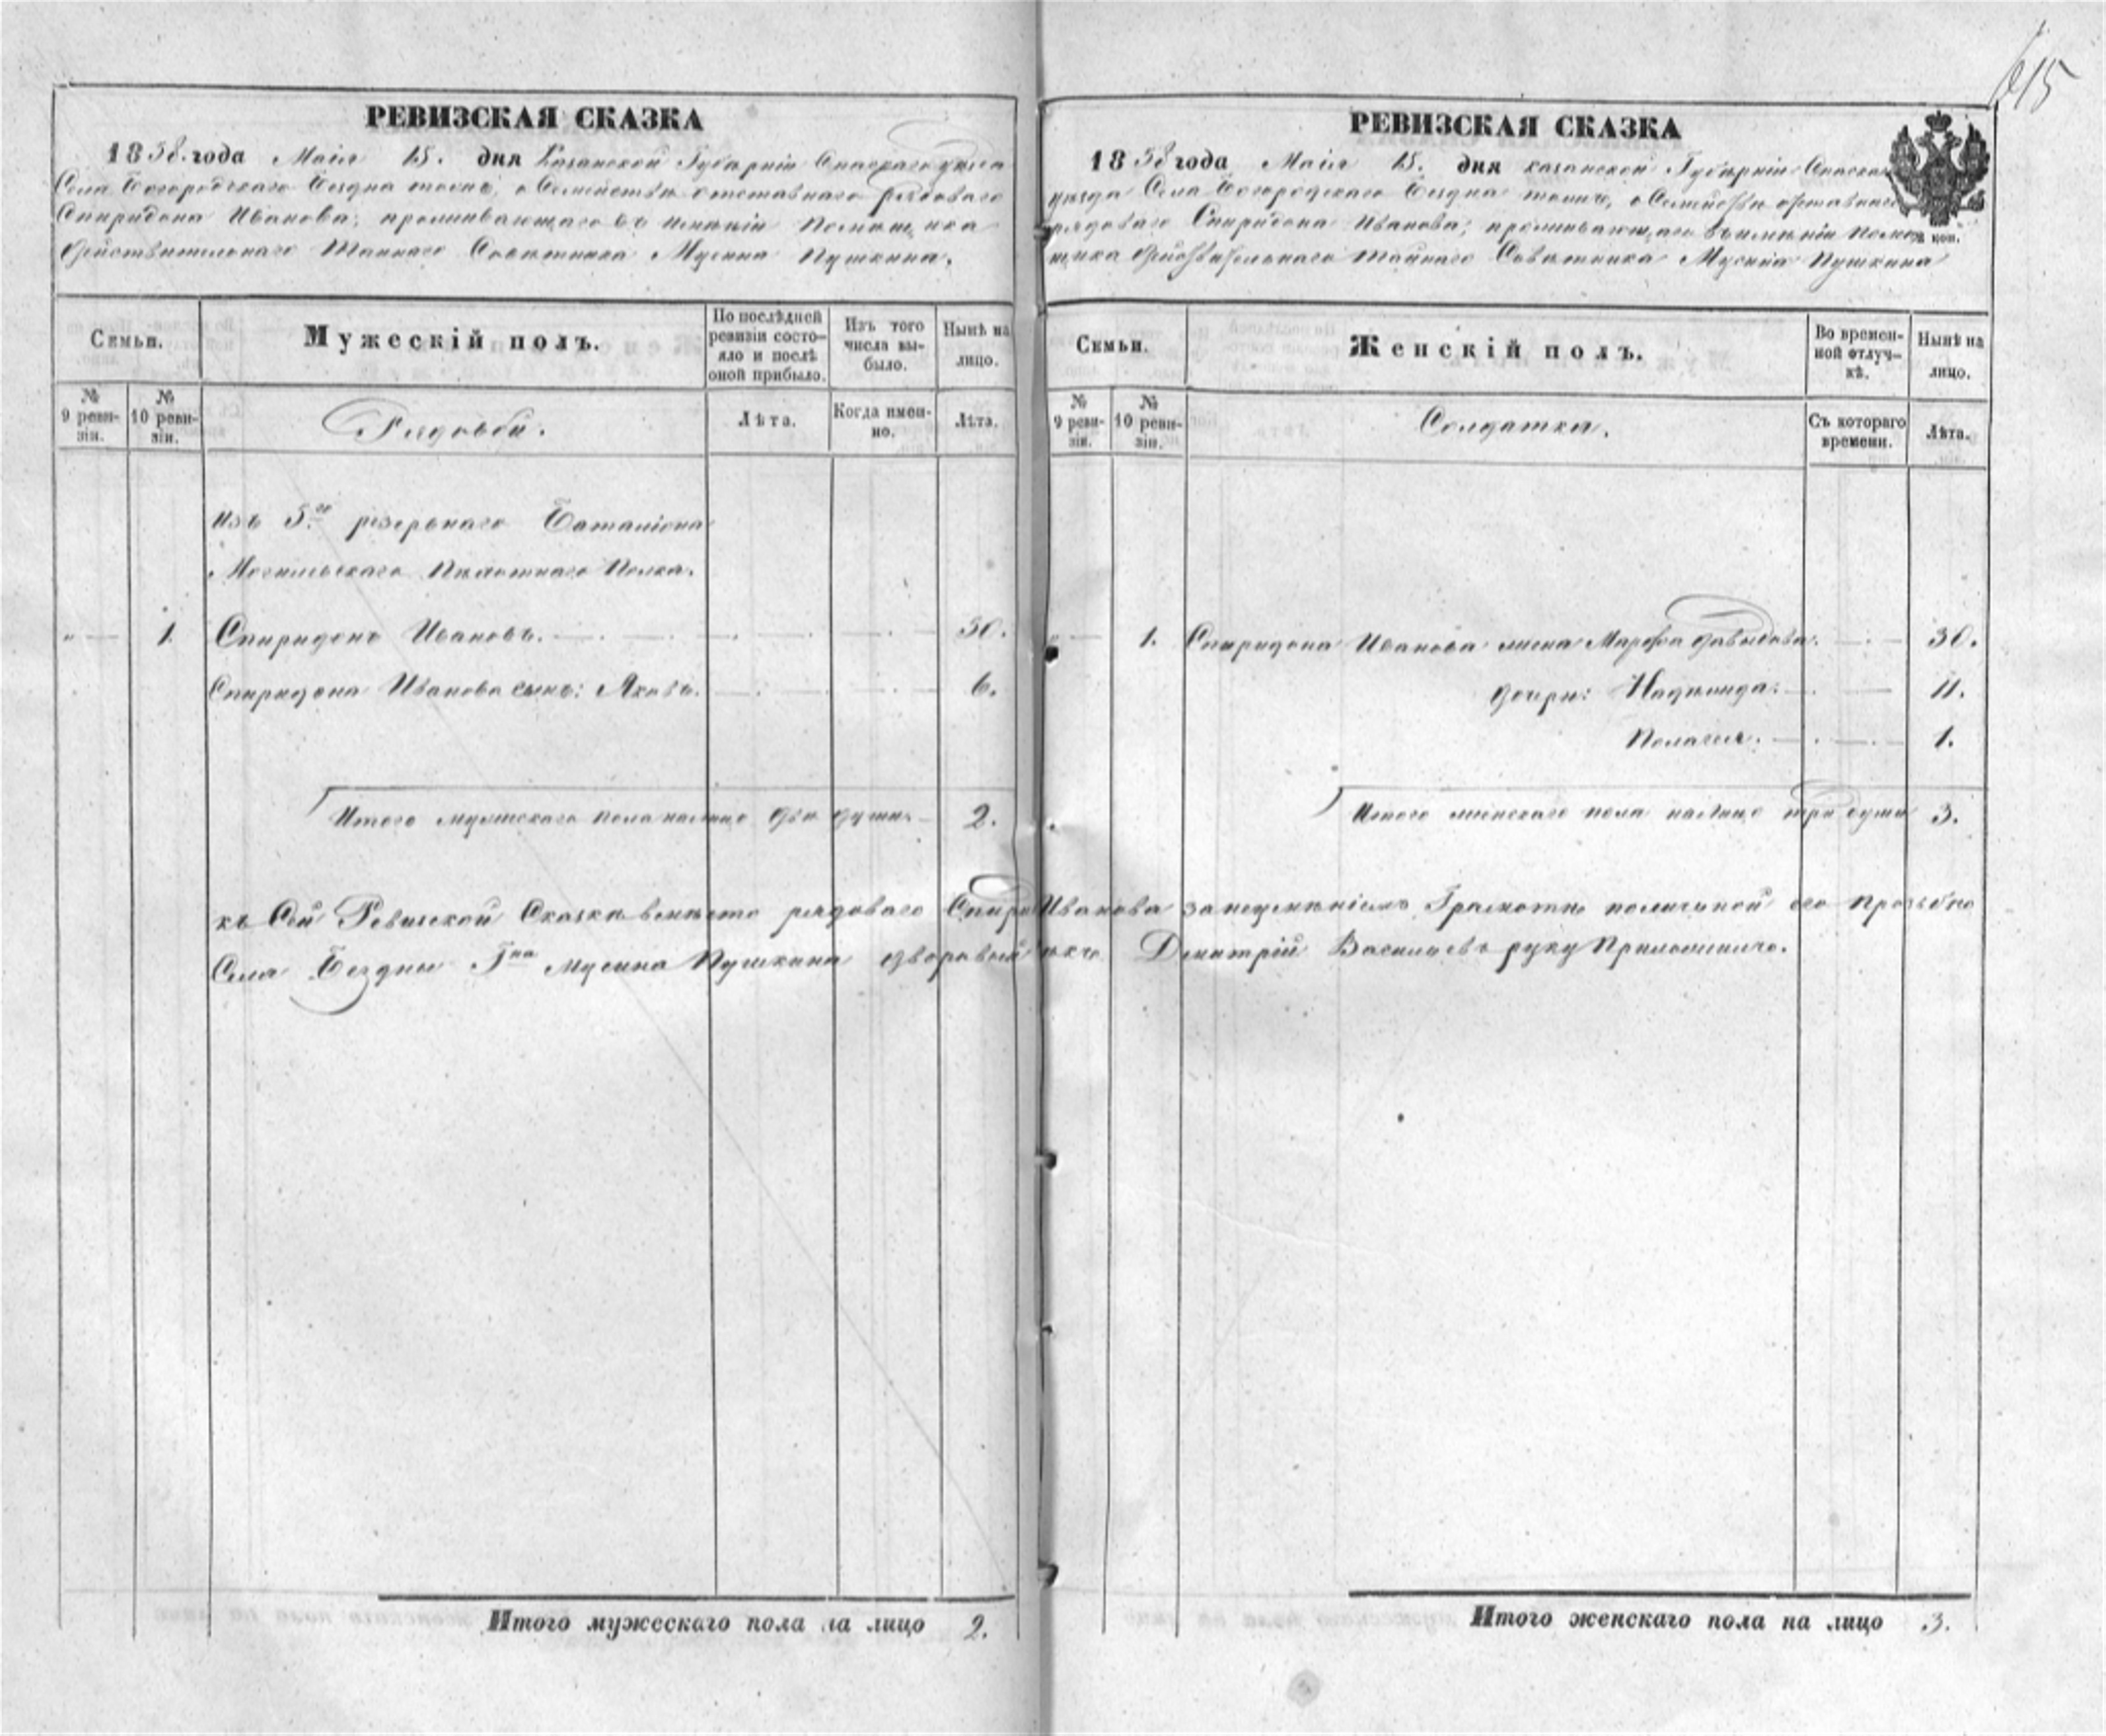 615
РЕВИЗСКАЯ СКАЗКА
1858 года Маія 15. дня Казанской Губерніи Спаскаго уѣзда
Села Богородскаго Бездна тожъ, о Семействѣ отставнаго рядоваго
Спиридона Иванова, проживающаго въ имѣніи Помѣщика
Действительнаго Тайнаго Советника Мусина Пушкина.
Семьи.
Мужескій полъ.
По послѣдней ревизіи состояло и послѣ оной прибыло.
Изъ того числа выбыло.
Нынѣ на лицо.
№ 9 ревизіи.
№ 10 ревизіи.
Рядовый.
Лѣта.
Когда именно.
Лѣта.
Изъ 5го резервнаго Баталіона
Могилевскаго Пехотнаго Полка.
" 1. Спиридонъ Ивановъ. 30.
Спиридона Иванова сынъ: Яковъ. 6.
Итого мужескаго пола налицо две души. 2.
Итого мужескаго пола на лицо 2.
РЕВИЗСКАЯ СКАЗКА
1858 года Маія 15. дня казанской Губерніи Спаскаго
уѣзда Села Богородскаго Бездна тожъ, о Семействѣ отставнаго
рядоваго Спиридона Иванова, проживающаго въ имѣніи Поме
щика Действительнаго тайнаго Советника Мусина Пушкина
коп.
Семьи.
Женскій полъ.
Во временной отлучкѣ.
Нынѣ на лицо.
№ 9 ревизіи.
№ 10 ревизіи.
Солдатка.
Съ котораго времени.
Лѣта.
" 1. Спиридона Иванова жена Марфа Давыдова. 30.
дочери: Надѣжда. 11.
Полагея. 1.
Итого женскаго пола налицо три души 3.
къ Сей Ревизской Сказкѣ вмѣсто рядоваго Спири Иванова за неумѣніемъ Грамотѣ по личной его прозьбѣ
Села Бездны Гна Мусина Пушкина дворовый Дмитрій Васильевъ руку Приложилъ.
Итого женскаго пола на лицо 3.